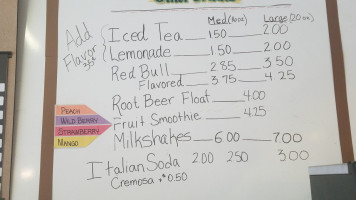 Med(16oz) Large(20oz)
Add Flavor
Iced Tea 150 200
Lemonade 150 200
Red Bull 285 350
Flavored 375 425
Root Beer Float 400
Fruit Smoothie 425
PEACH
WILD BERRY
STRAWBERRY
MANGO
Milkshakes 600 700
Italian Soda 200 250 300
Cremosa +$0.50